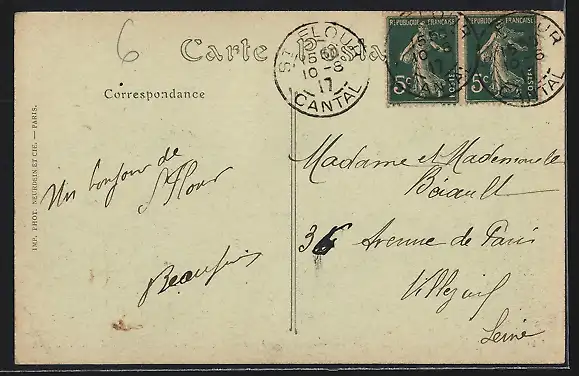 6
Carte Postale
Correspondance
IMP. PHOT. NEURDEIN ET CIE. — PARIS.
ST FLOUR
15
10-8
17
CANTAL
REPUBLIQUE FRANÇAISE
5c
POSTES
REPUBLIQUE FRANÇAISE
5c
POSTES
Un bonjour de
St Flour
Madame et Mademoiselle
Béault
36 Avenue de Paris
Villejuif
Seine